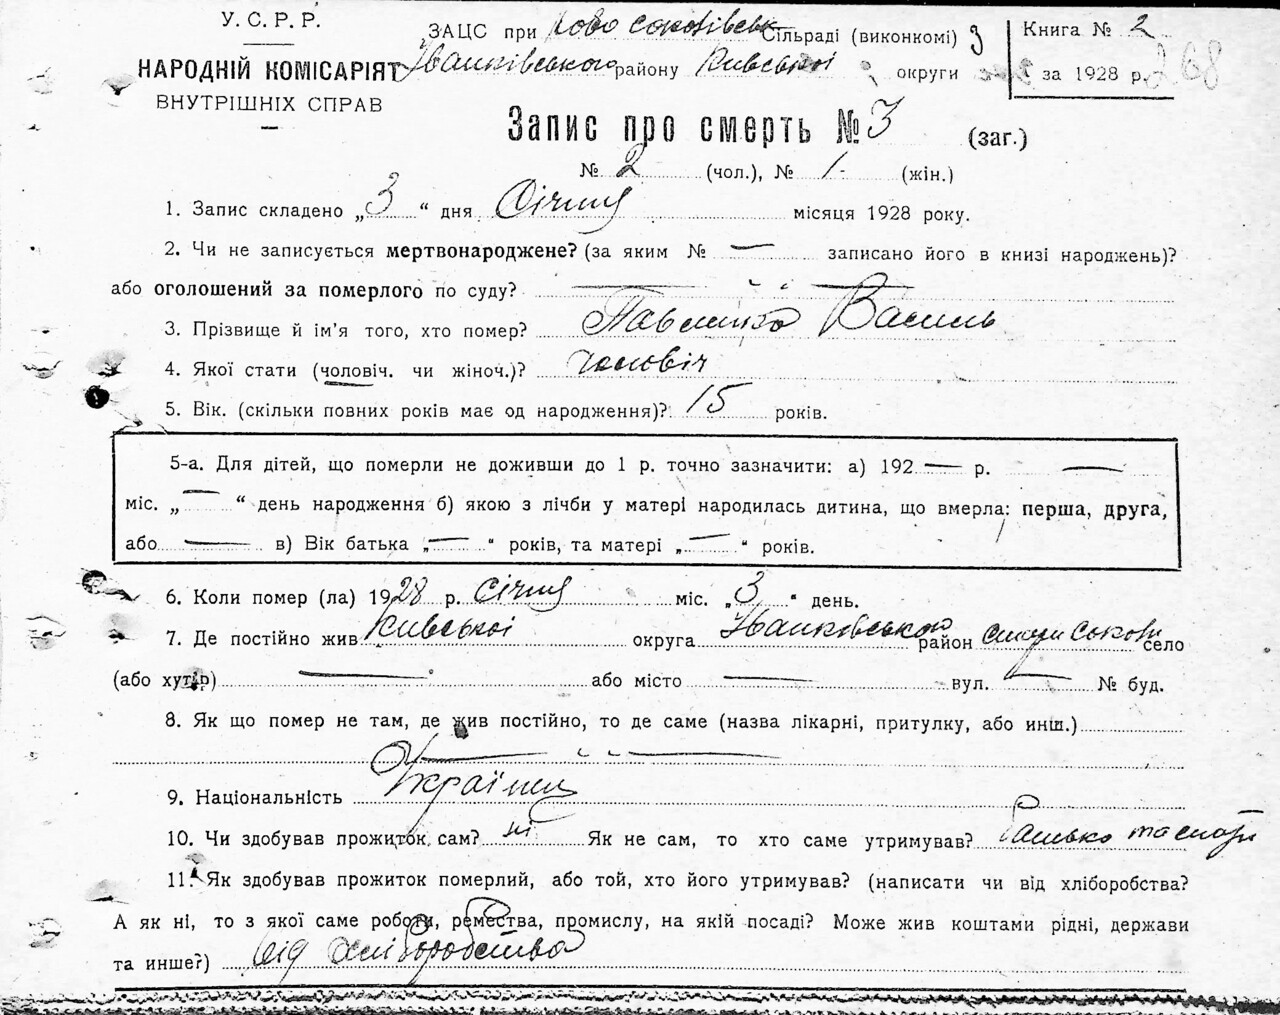 У. С. Р. Р.
НАРОДНІЙ КОМІСАРІЯТ
ВНУТРІШНІХ СПРАВ
ЗАЦС при Ново соколівськ Сільраді (виконкомі) 3
Іванківського району Київської округи
Книга № 2
за 1928 р. 268
Запис про смерть № 3 (заг.)
№ 2 (чол.), № 1 - (жін.)
1. Запис складено „ 3 “ дня Січня місяця 1928 року.
2. Чи не записується мертвонароджене? (за яким № — записано його в книзі народжень)?
або оголошений за померлого по суду? —
3. Прізвище й ім'я того, хто помер? Павленко Василь
4. Якої стати (чоловіч. чи жіноч.)? чоловіч
5. Вік. (скільки повних років має од народження)? 15 років.
5-а. Для дітей, що померли не доживши до 1 р. точно зазначити: а) 192 — р. —
міс. „ — “ день народження б) якою з лічби у матері народилась дитина, що вмерла: перша, друга,
або — в) Вік батька „ — “ років, та матері „ — “ років.
6. Коли помер (ла) 1928 р. січня міс. „ 3 “ день.
7. Де постійно жив Київської округа Іванківського район село
(або хутір) — або місто — вул. — № буд.
8. Як що помер не там, де жив постійно, то де саме (назва лікарні, притулку, або инш.)
—
9. Національність Українец
10. Чи здобував прожиток сам? ні Як не сам, то хто саме утримував? Батько та мати
11. Як здобував прожиток померлий, або той, хто його утримував? (написати чи від хліборобства?
А як ні, то з якої саме роботи, ремества, промислу, на якій посаді? Може жив коштами рідні, держави
та инше?) від хліборобства